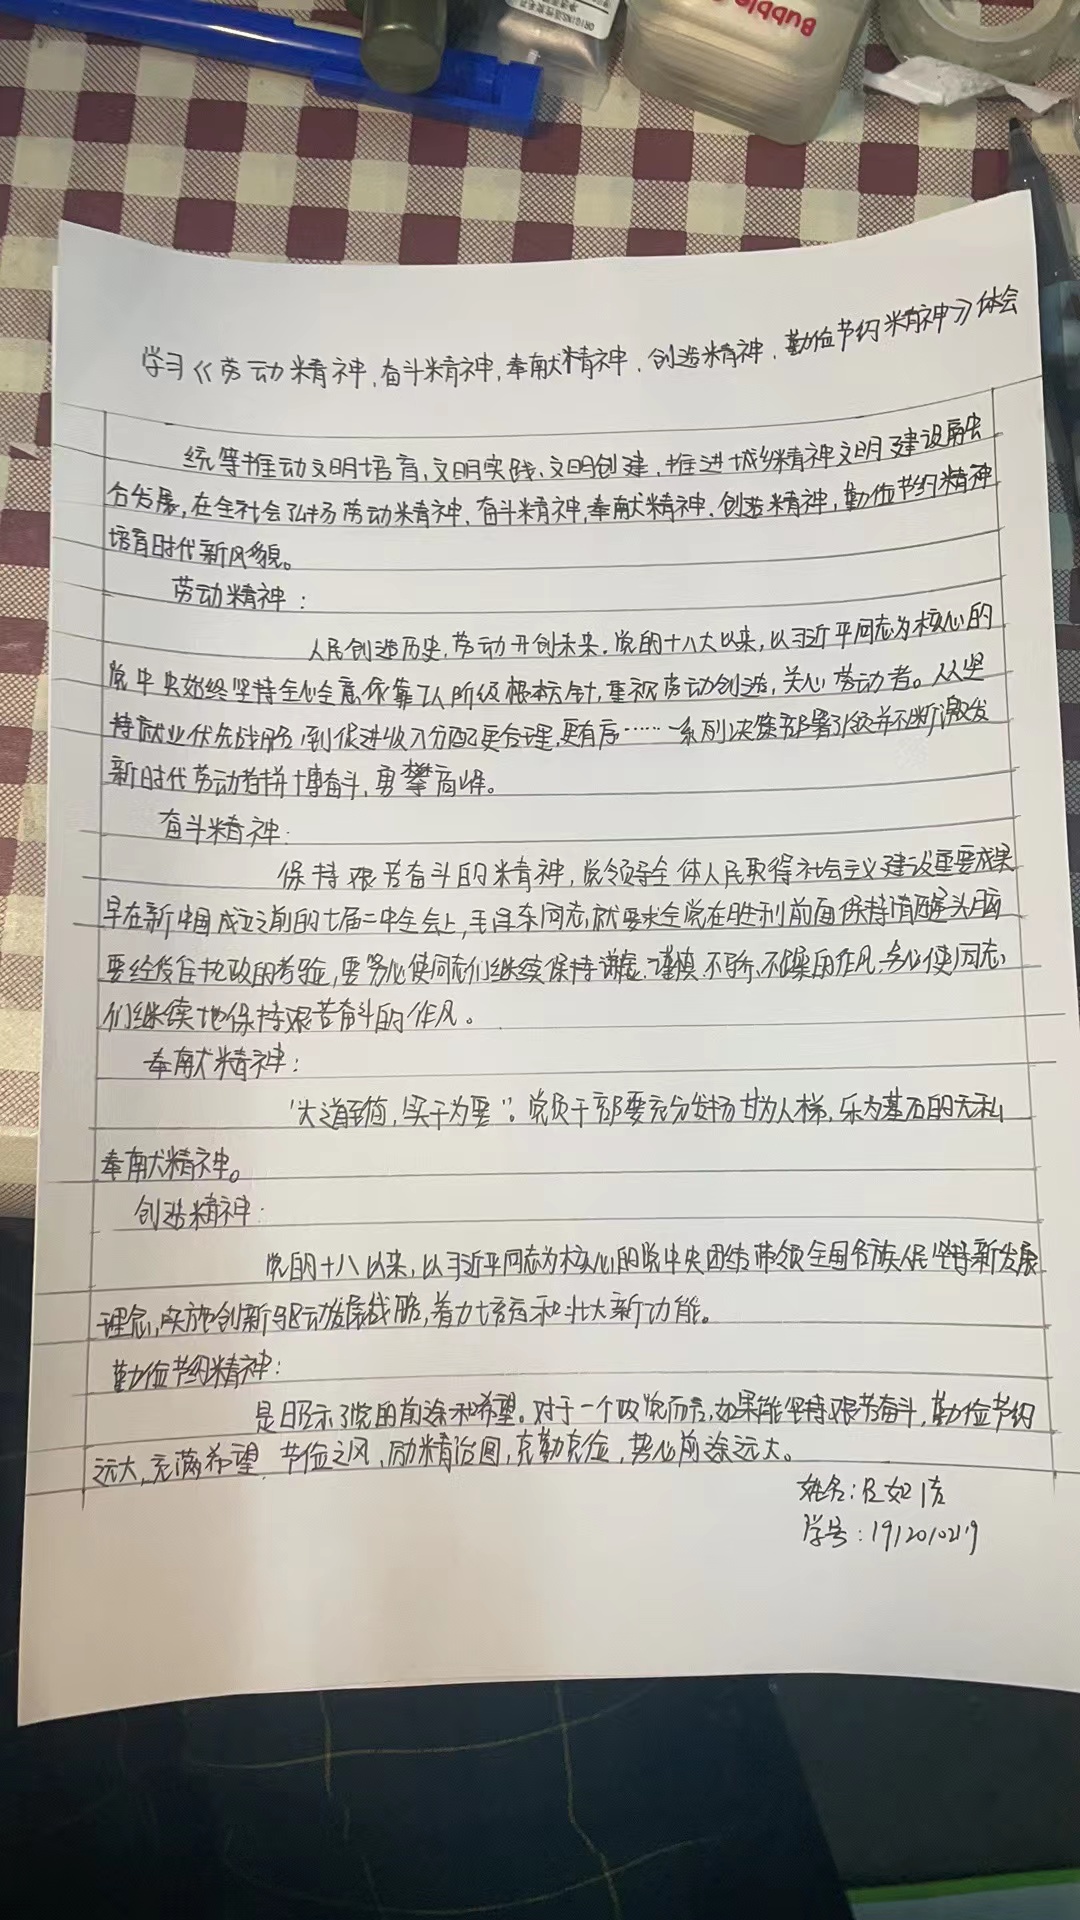 Bubble
ORIGINS
学习《劳动精神、奋斗精神、奉献精神、创造精神、勤俭节约精神》体会
统筹推动文明培育、文明实践、文明创建,推进城乡精神文明建设融
合发展,在全社会弘扬劳动精神、奋斗精神,奉献精神、创造精神,勤俭节约精神
培育时代新风貌。
劳动精神:
人民创造历史,劳动开创未来。党的十八大以来,以习近平同志为核心的
党中央始终坚持全心全意依靠工人阶级根本方针,重视劳动创造,关心劳动者。从坚
持就业优先战略,到促进收入分配更合理,更有序……一系列决策部署引领并不断激发
新时代劳动者拼搏奋斗,勇攀高峰。
奋斗精神:
保持艰苦奋斗的精神,党领导全体人民取得社会主义建设重要成果
早在新中国成立之前的七届二中全会上,毛泽东同志就要求全党在胜利前面保持清醒头脑
要经受住执政的考验,要务必使同志们继续保持谦虚、谨慎、不骄、不躁的作风,务必使同志
们继续地保持艰苦奋斗的作风。
奉献精神:
"大道至简,实干为要"。党员干部要充分发扬甘为人梯,乐为基石的无私
奉献精神。
创造精神:
党的十八以来,以习近平同志为核心的党中央团结带领全国各族人民坚持新发展
理念,实施创新驱动发展战略,着力培育和壮大新动能。
勤俭节约精神:
是昭示了党的前途和希望。对于一个政党而言,如果能坚持艰苦奋斗,勤俭节约
远大,充满希望 节俭之风、励精治图,克勤克俭,势必前途远大。
姓名:
学号:1912010219